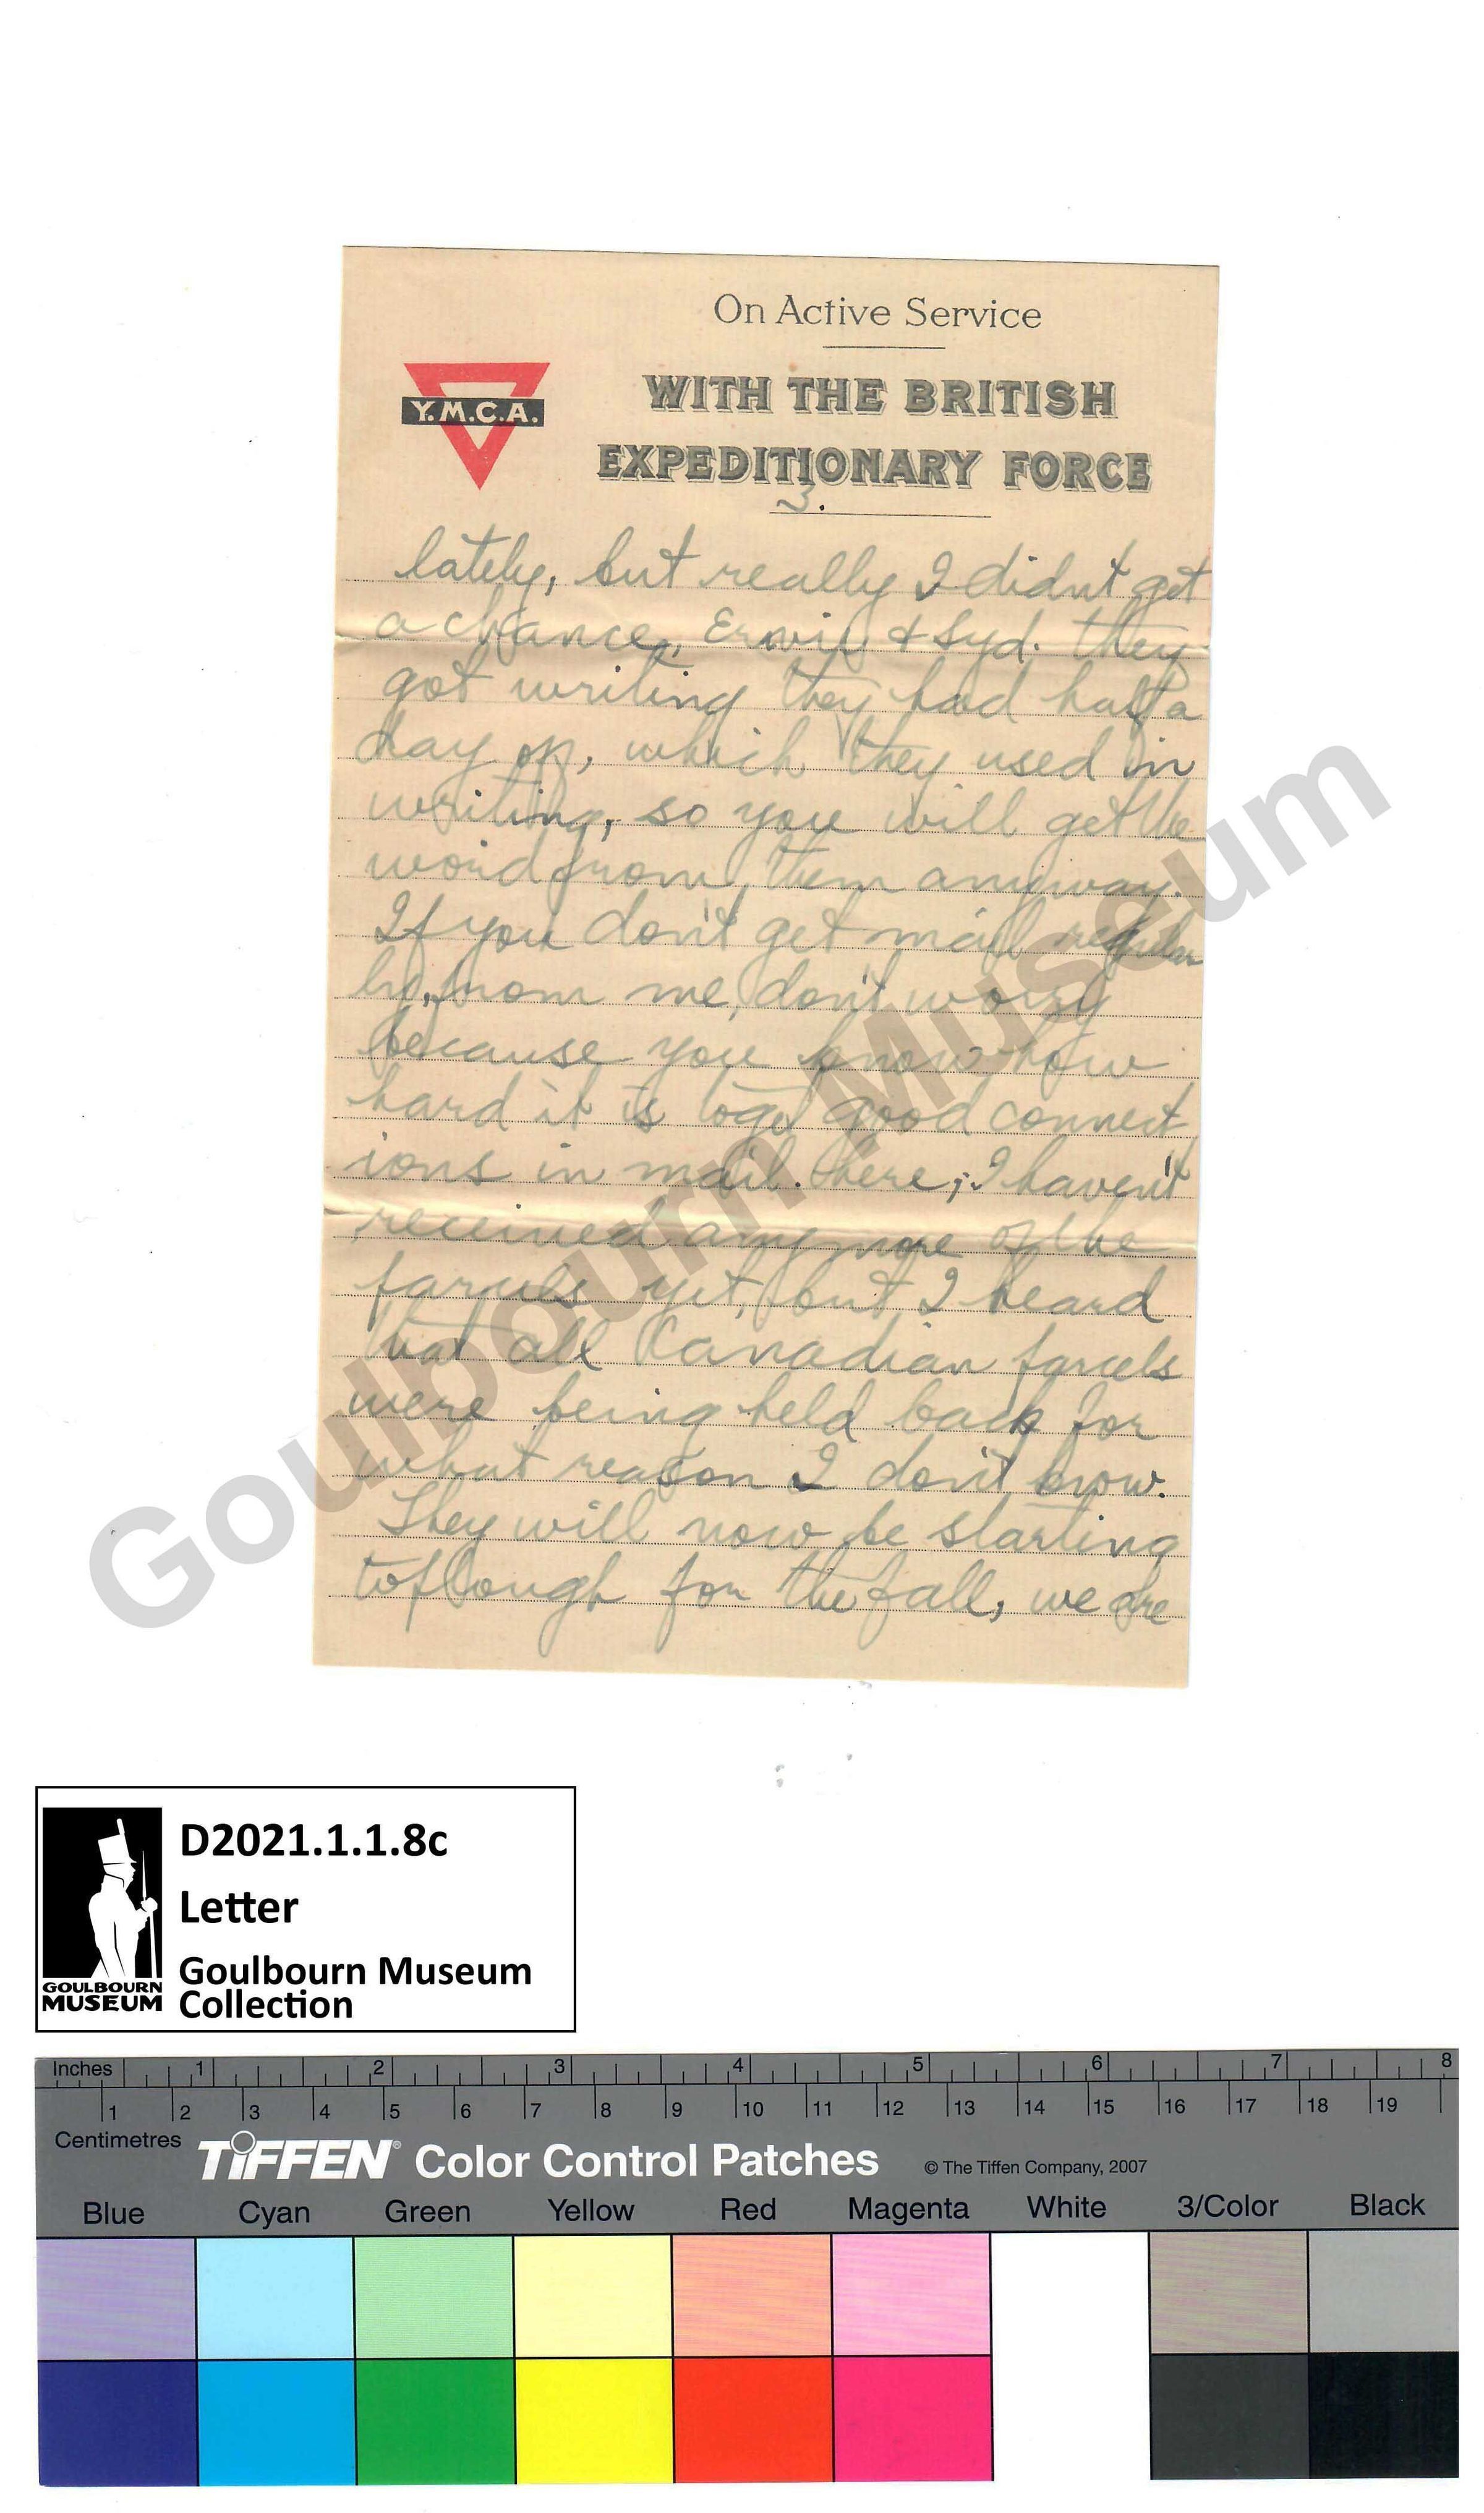 On Active Service
Y.M.C.A.
WITH THE BRITISH
EXPEDITIONARY FORCE
3.
lately, but really I didn't get
a chance, Erwin & Syd. they
got writing they had half a
day off, which they used in
writing, so you will get the
word from them anyway.
If you don't get mail regular
ly, from me, don't worry
because you know how
hard it is to get good connect
ions in mail. here; I haven't
received anymore of the
parcels yet, but I heard
that all Canadian parcels
were being held back for
what reason I don't know.
They will now be starting
to plough for the fall, we are
Goulbourn Museum
D2021.1.1.8c
Letter
Goulbourn Museum
Collection
GOULBOURN
MUSEUM
Inches 1 2 3 4 5 6 7 8
1 2 3 4 5 6 7 8 9 10 11 12 13 14 15 16 17 18 19
Centimetres
TIFFEN® Color Control Patches © The Tiffen Company, 2007
Blue Cyan Green Yellow Red Magenta White 3/Color Black